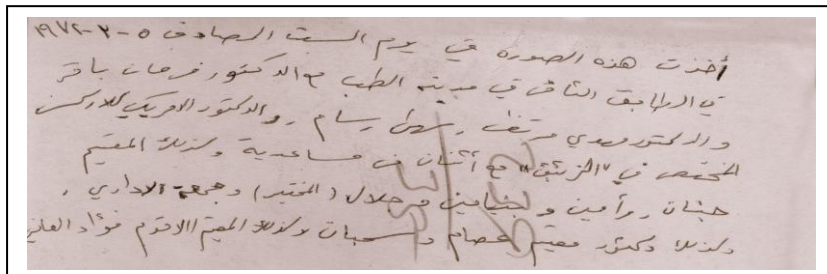 أخذت هذه الصورة في يوم السبت المصادف ٥-٢-١٩٧٢
في الطابق الثاني في مدينة الطب مع الدكتور فرحان باقر
والدكتور مهدي مرتضى وسهى رسام، والدكتور الامريكي كلاركسن
المختص في "الزئبق" مع أثنان من مساعديه وكذلك المقيم
حنان، رأمين وبنيامين وجلال (المختبر) وجمعة الاداري،
وكذلك دكتور مقيم عصام وشعبان وكذلك المقيم الاقدم فؤاد العاني